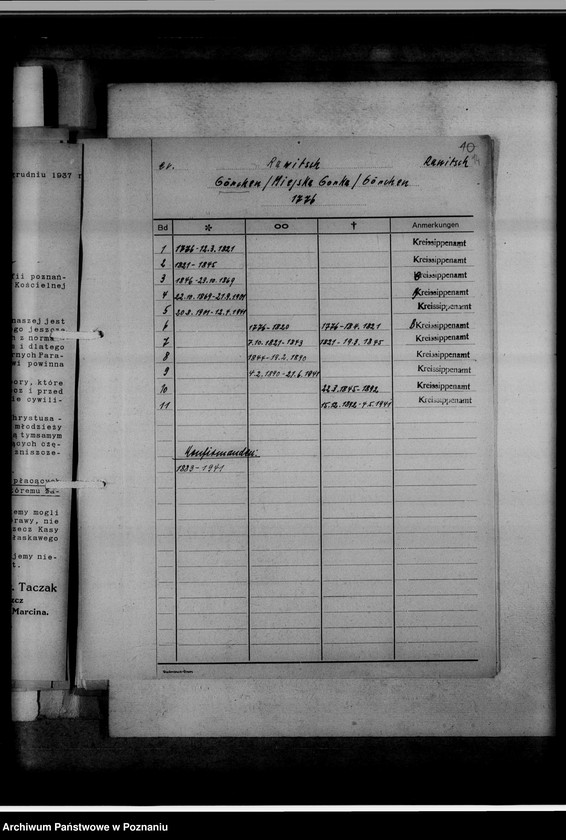 40
ev. Rawitsch Rawitsch
Görchen/Miejska Gorka/Görchen
1776
Bd * ∞ † Anmerkungen
1 1776-12.3.1821 Kreissippenamt
2 1821-1845 Kreissippenamt
3 1846-23.10.1869 Kreissippenamt
4 22.10.1869-21.9.1901 Kreissippenamt
5 30.8.1901-12.4.1941 Kreissippenamt
6 1776-1820 1776-18.4.1821 Kreissippenamt
7 7.10.1821-1843 1821-19.8.1845 Kreissippenamt
8 1844-19.2.1890 Kreissippenamt
9 4.2.1890-21.6.1941 Kreissippenamt
10 22.8.1845-1892 Kreissippenamt
11 15.12.1892-4.5.1941 Kreissippenamt
Konfirmanden:
1833-1941
grudniu 1937 r
fii poznań-
Kościelnej
naszej jest
go jeszcze
i dlatego
rnych Para-
wi powinna
ory, które
oz i przed
ie cywili-
hrystusa -
młodzieży
tymsamym
ących czę-
zniszcze-
płacących
óremu
emy mogli
rawy, nie
rzecz Kasy
łaskawego
jemy nie-
t.
. Taczak
szcz
Marcina.
Archiwum Państwowe w Poznaniu